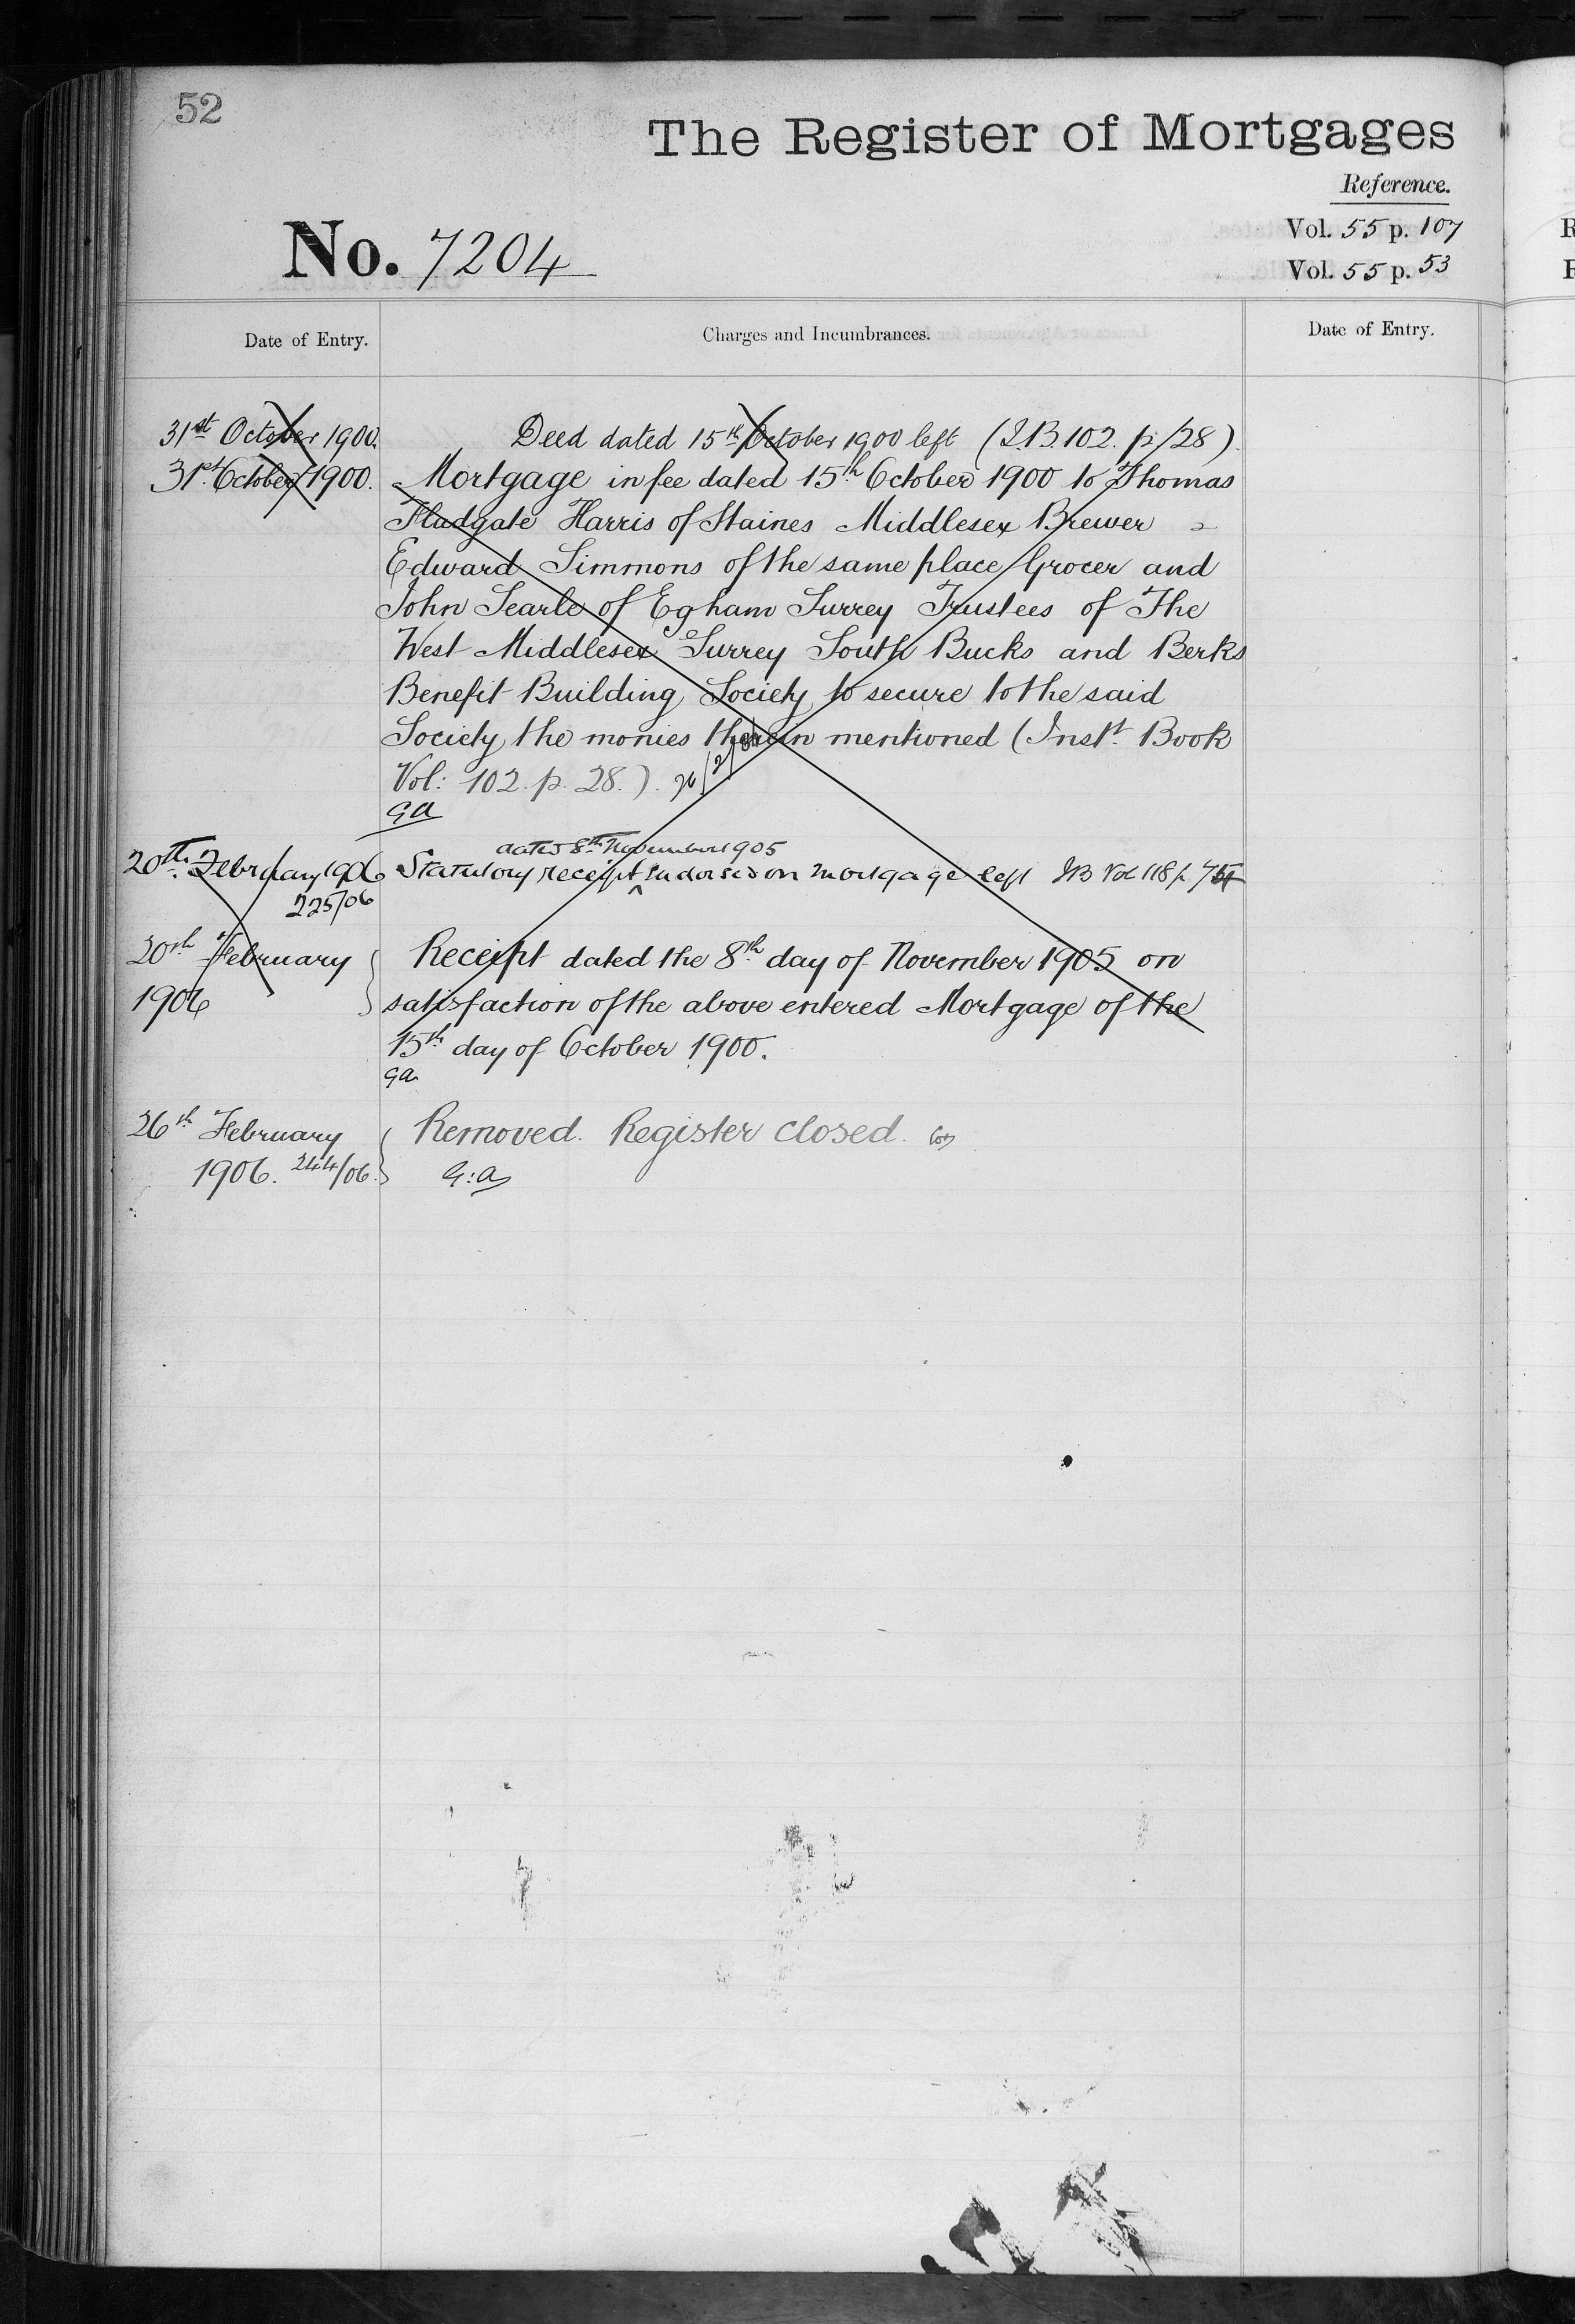 52
The Register of Mortgages
Reference.
No. 7204
Vol. 55 p. 107
Vol. 55 p. 53
Date of Entry.
Charges and Incumbrances.
Date of Entry.
31st October 1900.
Deed dated 15th October 1900 left (I.B. 102. p. 28).
31st October 1900.
Mortgage in fee dated 15th October 1900 to Thomas
Fladgate Harris of Staines Middlesex Brewer
Edward Simmons of the same place Grocer and
John Searle of Egham Surrey Trustees of The
West Middlesex Surrey South Bucks and Berks
Benefit Building Society to secure to the said
Society the monies therein mentioned (Instt. Book
Vol: 102. p. 28.).
GA
dated 8th November 1905
20th February 1906
Statutory receipt ^ indorsed on mortgage left IB Vol 118 p.
225/06
20th February
1906
Receipt dated the 8th day of November 1905 on
satisfaction of the above entered Mortgage of the
15th day of October 1900.
GA
26th February
1906. 244/06.
Removed. Register closed.
G:A